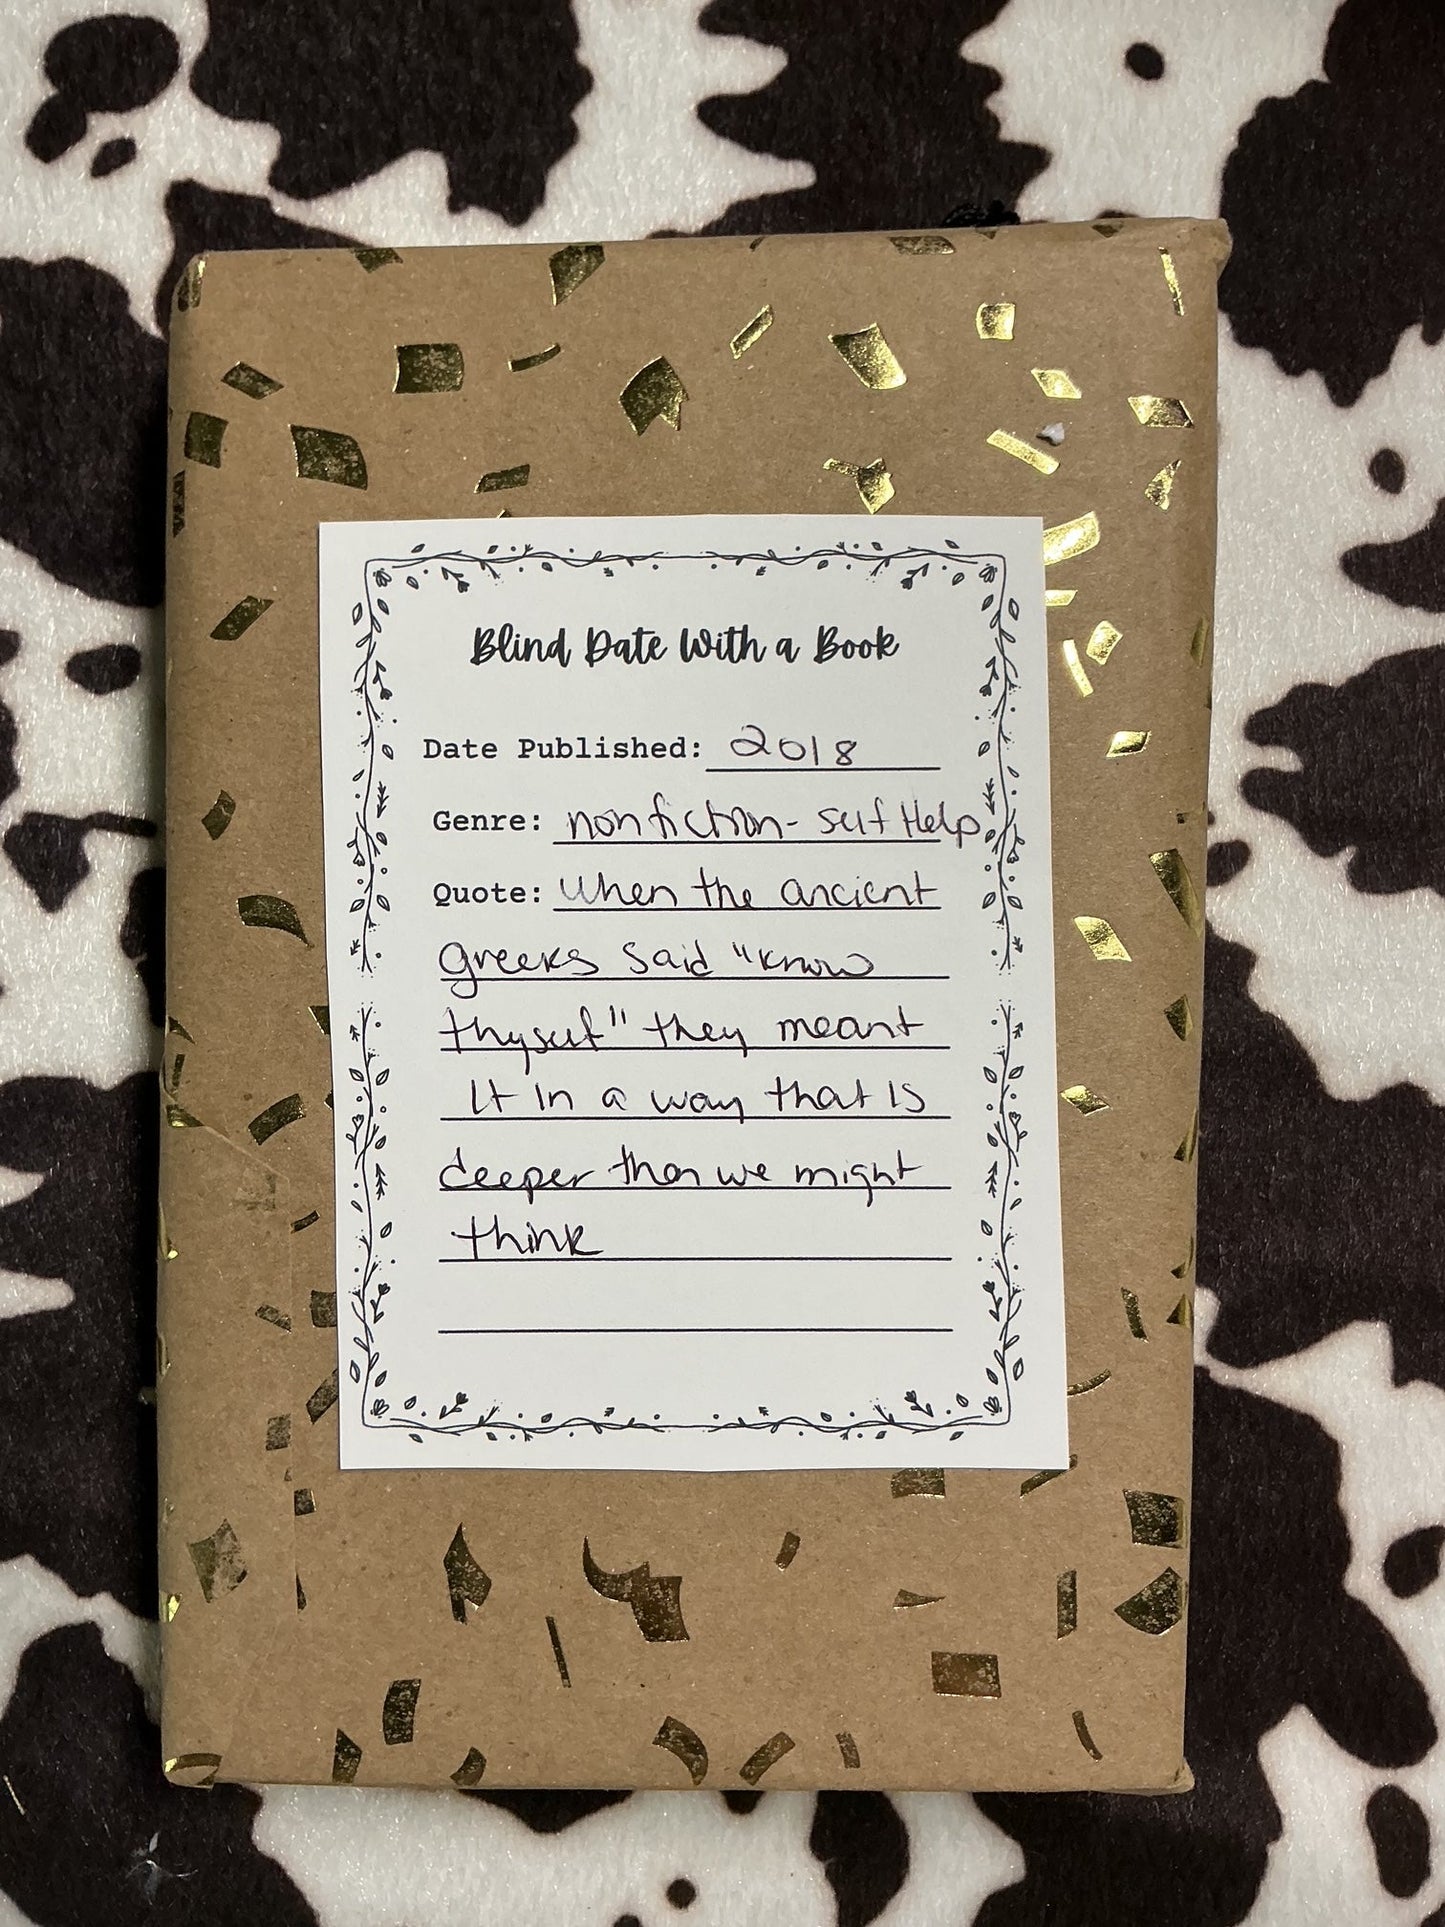 Blind Date With a Book
Date Published: 2018
Genre: nonfiction- self Help
Quote: When the ancient
greeks said "know
thyself" they meant
It in a way that is
deeper than we might
think